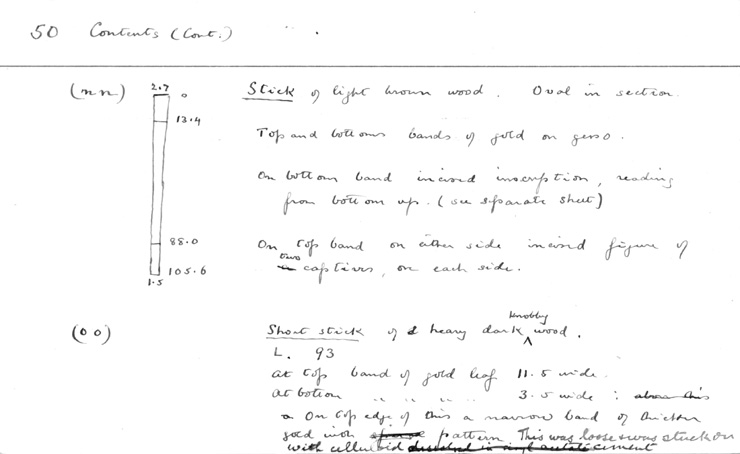 50 Contents (Cont.)
(nn) 2.7 0 Stick of light brown wood. Oval in section.
13.4 Top and bottom bands of gold on gesso.
On bottom band incised inscription, reading
from bottom up. (see separate sheet)
88.0 On top band on either side incised figure of
two
captives, on each side.
105.6
1.5
knobby
(oo) Short stick of heavy dark wood.
L. 93
at top band of gold leaf 11.5 wide.
at bottom " " " " 3.5 wide : above this
On top edge of this a narrow band of thicker
gold with pattern This was loose & was stuck on
with celluloid dissolved in amyl acetate cement